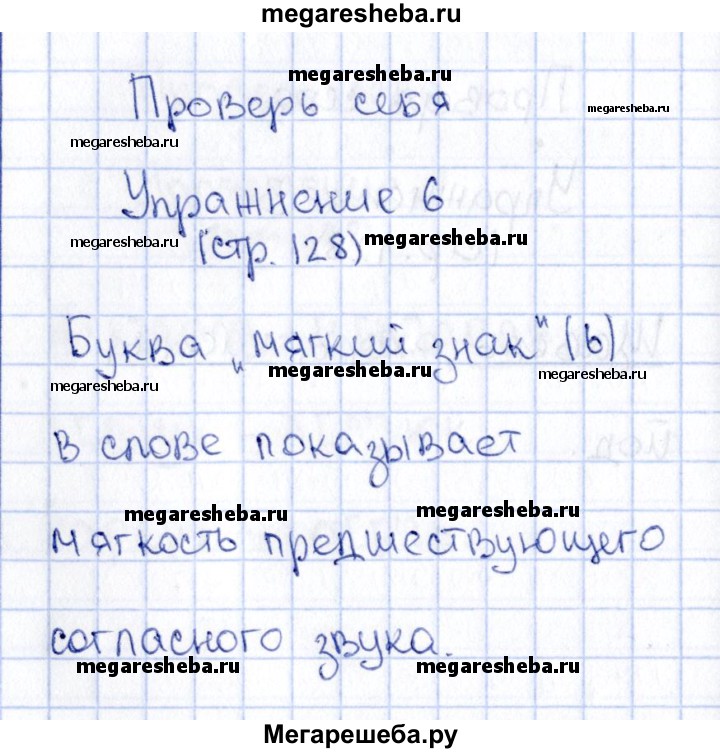 megaresheba.ru
megaresheba.ru
Проверь себя
megaresheba.ru
megaresheba.ru
Упражнение 6
megaresheba.ru
(стр. 128)
megaresheba.ru
Буква „мягкий знак" (ь)
megaresheba.ru
megaresheba.ru
megaresheba.ru
в слове показывает
megaresheba.ru
megaresheba.ru
мягкость предшествующего
согласного звука.
megaresheba.ru
megaresheba.ru
Мегарешеба.ру